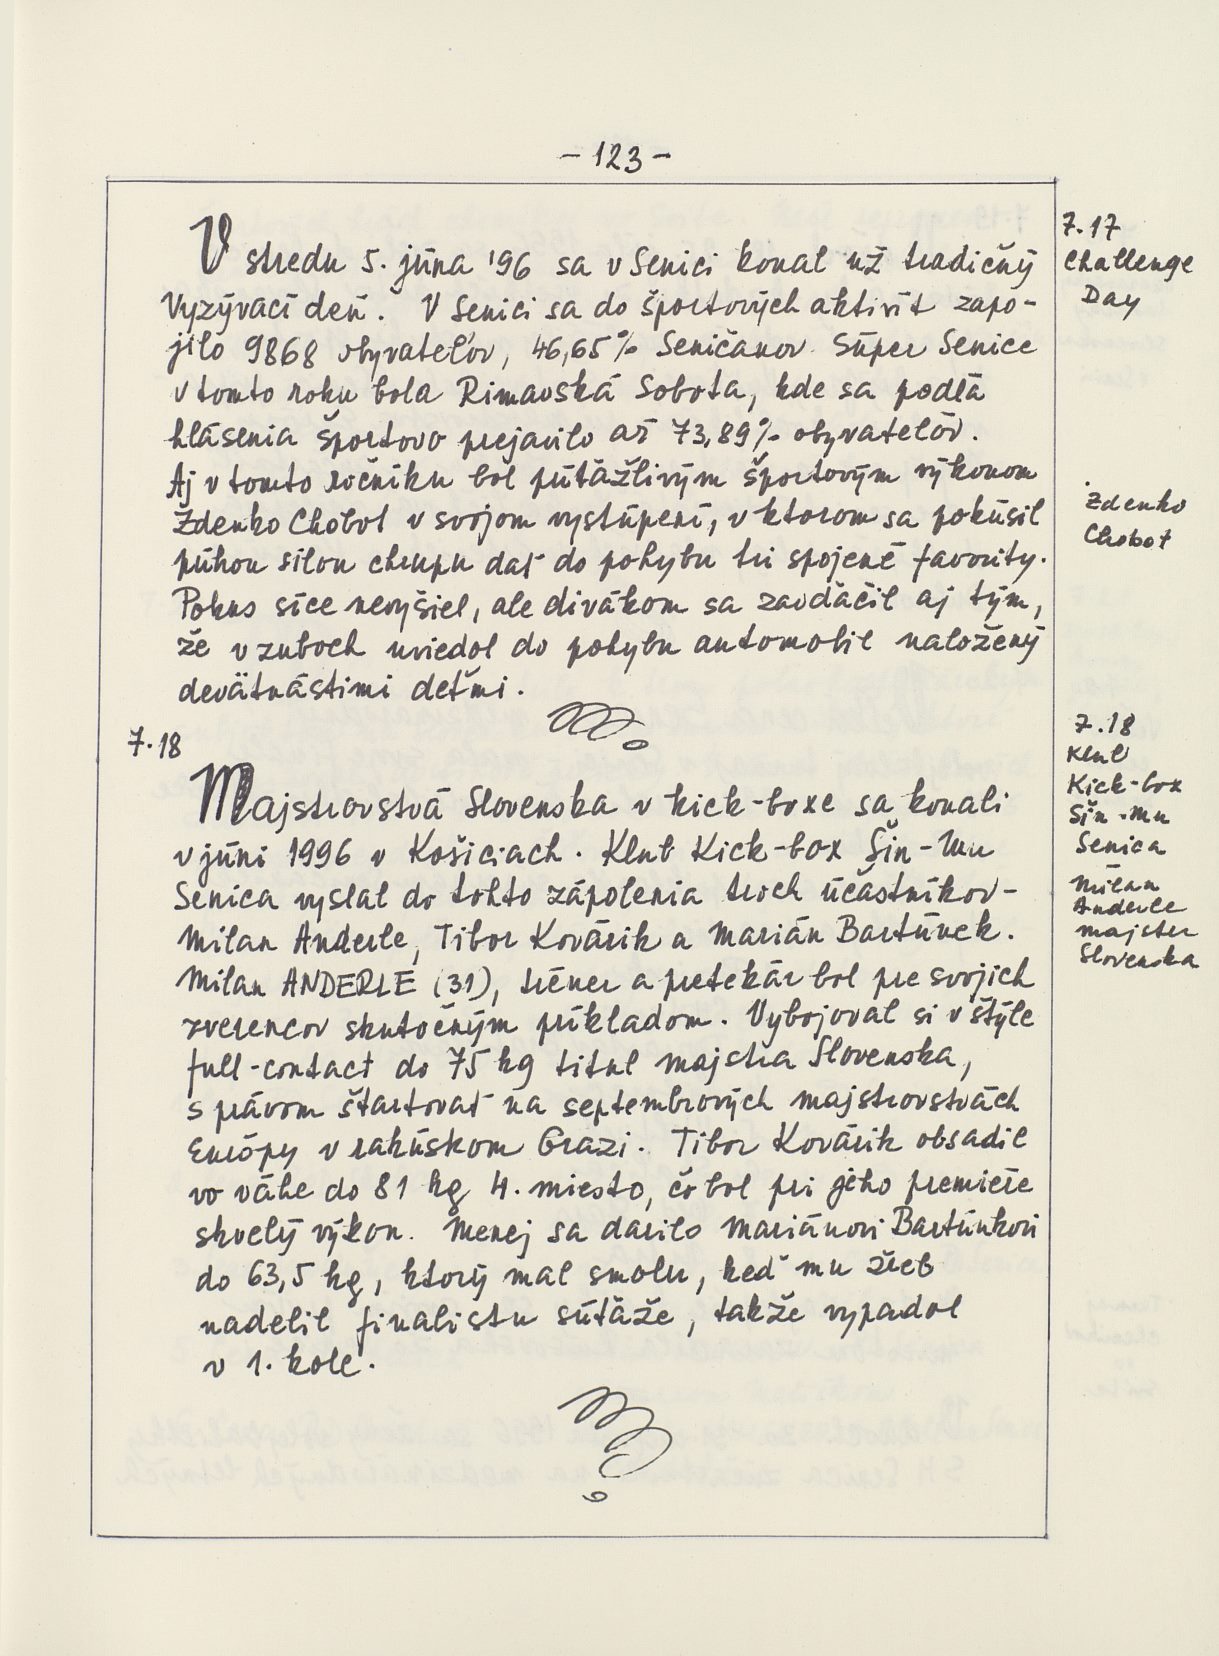 - 123 -
V stredu 5. júna '96 sa v Senici konal už tradičný
Vyzývací deň. V Senici sa do športových aktivít zapo-
jilo 9868 obyvateľov, 46,65% Seničanov. Súper Senice
v tomto roku bola Rimavská Sobota, kde sa podľa
hlásenia športovo prejavilo až 73,89% obyvateľov.
Aj v tomto ročníku bol pútážlivým športovým výkonom
Zdenko Chobot v svojom vystúpení, v ktorom sa pokúsil
púhou silou chrupu dať do pohybu tri spojené favority.
Pokus síce nevyšiel, ale divákom sa zavďáčil aj tým,
že v zuboch uviedol do pohybu automobil naložený
devätnástimi deťmi.
7.17
Challenge
Day
Zdenko
Chobot
7.18
Majstrovstvá Slovenska v kick-boxe sa konali
v júni 1996 v Košiciach. Klub Kick-box Šin-Mu
Senica vyslal do tohto zápolenia troch účastníkov-
Milan Anderle, Tibor Kovárik a Marián Bartúnek.
Milan ANDERLE (31), tréner a pretekár bol pre svojich
zverencov skutočným príkladom. Vybojoval si v štýle
full-contact do 75 kg titul majstra Slovenska,
s právom štartovať na septembrových majstrovstvách
Európy v rakúskom Grazi. Tibor Kovárik obsadil
vo váhe do 81 kg 4. miesto, čo bol pri jeho premiére
skvelý výkon. Menej sa darilo Mariánovi Bartúnkovi
do 63,5 kg, ktorý mal smolu, keď mu žreb
nadelil finalistu súťáže, takže vypadol
v 1. kole.
7.18
Klub
Kick-box
Šin-Mu
Senica
Milan
Anderle
majster
Slovenska